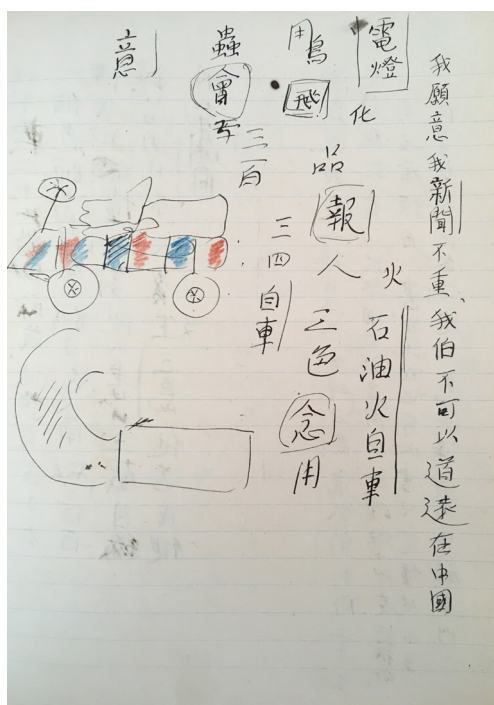 我願意我新聞不重、我伯不可以道遠在中國
電燈
化
火
石油火自車
用鳥
品
報
人
三色
念
用
蟲
會
三百
三四自車
意